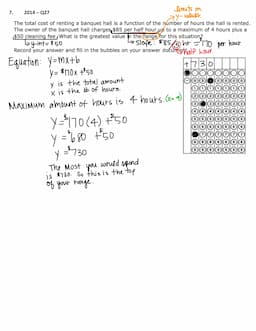 7. 2014 – Q27
limits on
y-values
The total cost of renting a banquet hall is a function of the number of hours the hall is rented.
The owner of the banquet hall charges $85 per half hour up to a maximum of 4 hours plus a
$50 cleaning fee. What is the greatest value in the range for this situation?
y-int = $50
slope: $85
= $170 per hour
half hour
Record your answer and fill in the bubbles on your answer
+730
Equation: y=mx+b
y=$170x+$50
y is the total amount
x is the # of hours
Maximum amount of hours is 4 hours. (x=4)
y=$170(4)+$50
y=$680+$50
y=$730
The most you would spend
is $730. So this is the top
of your range.